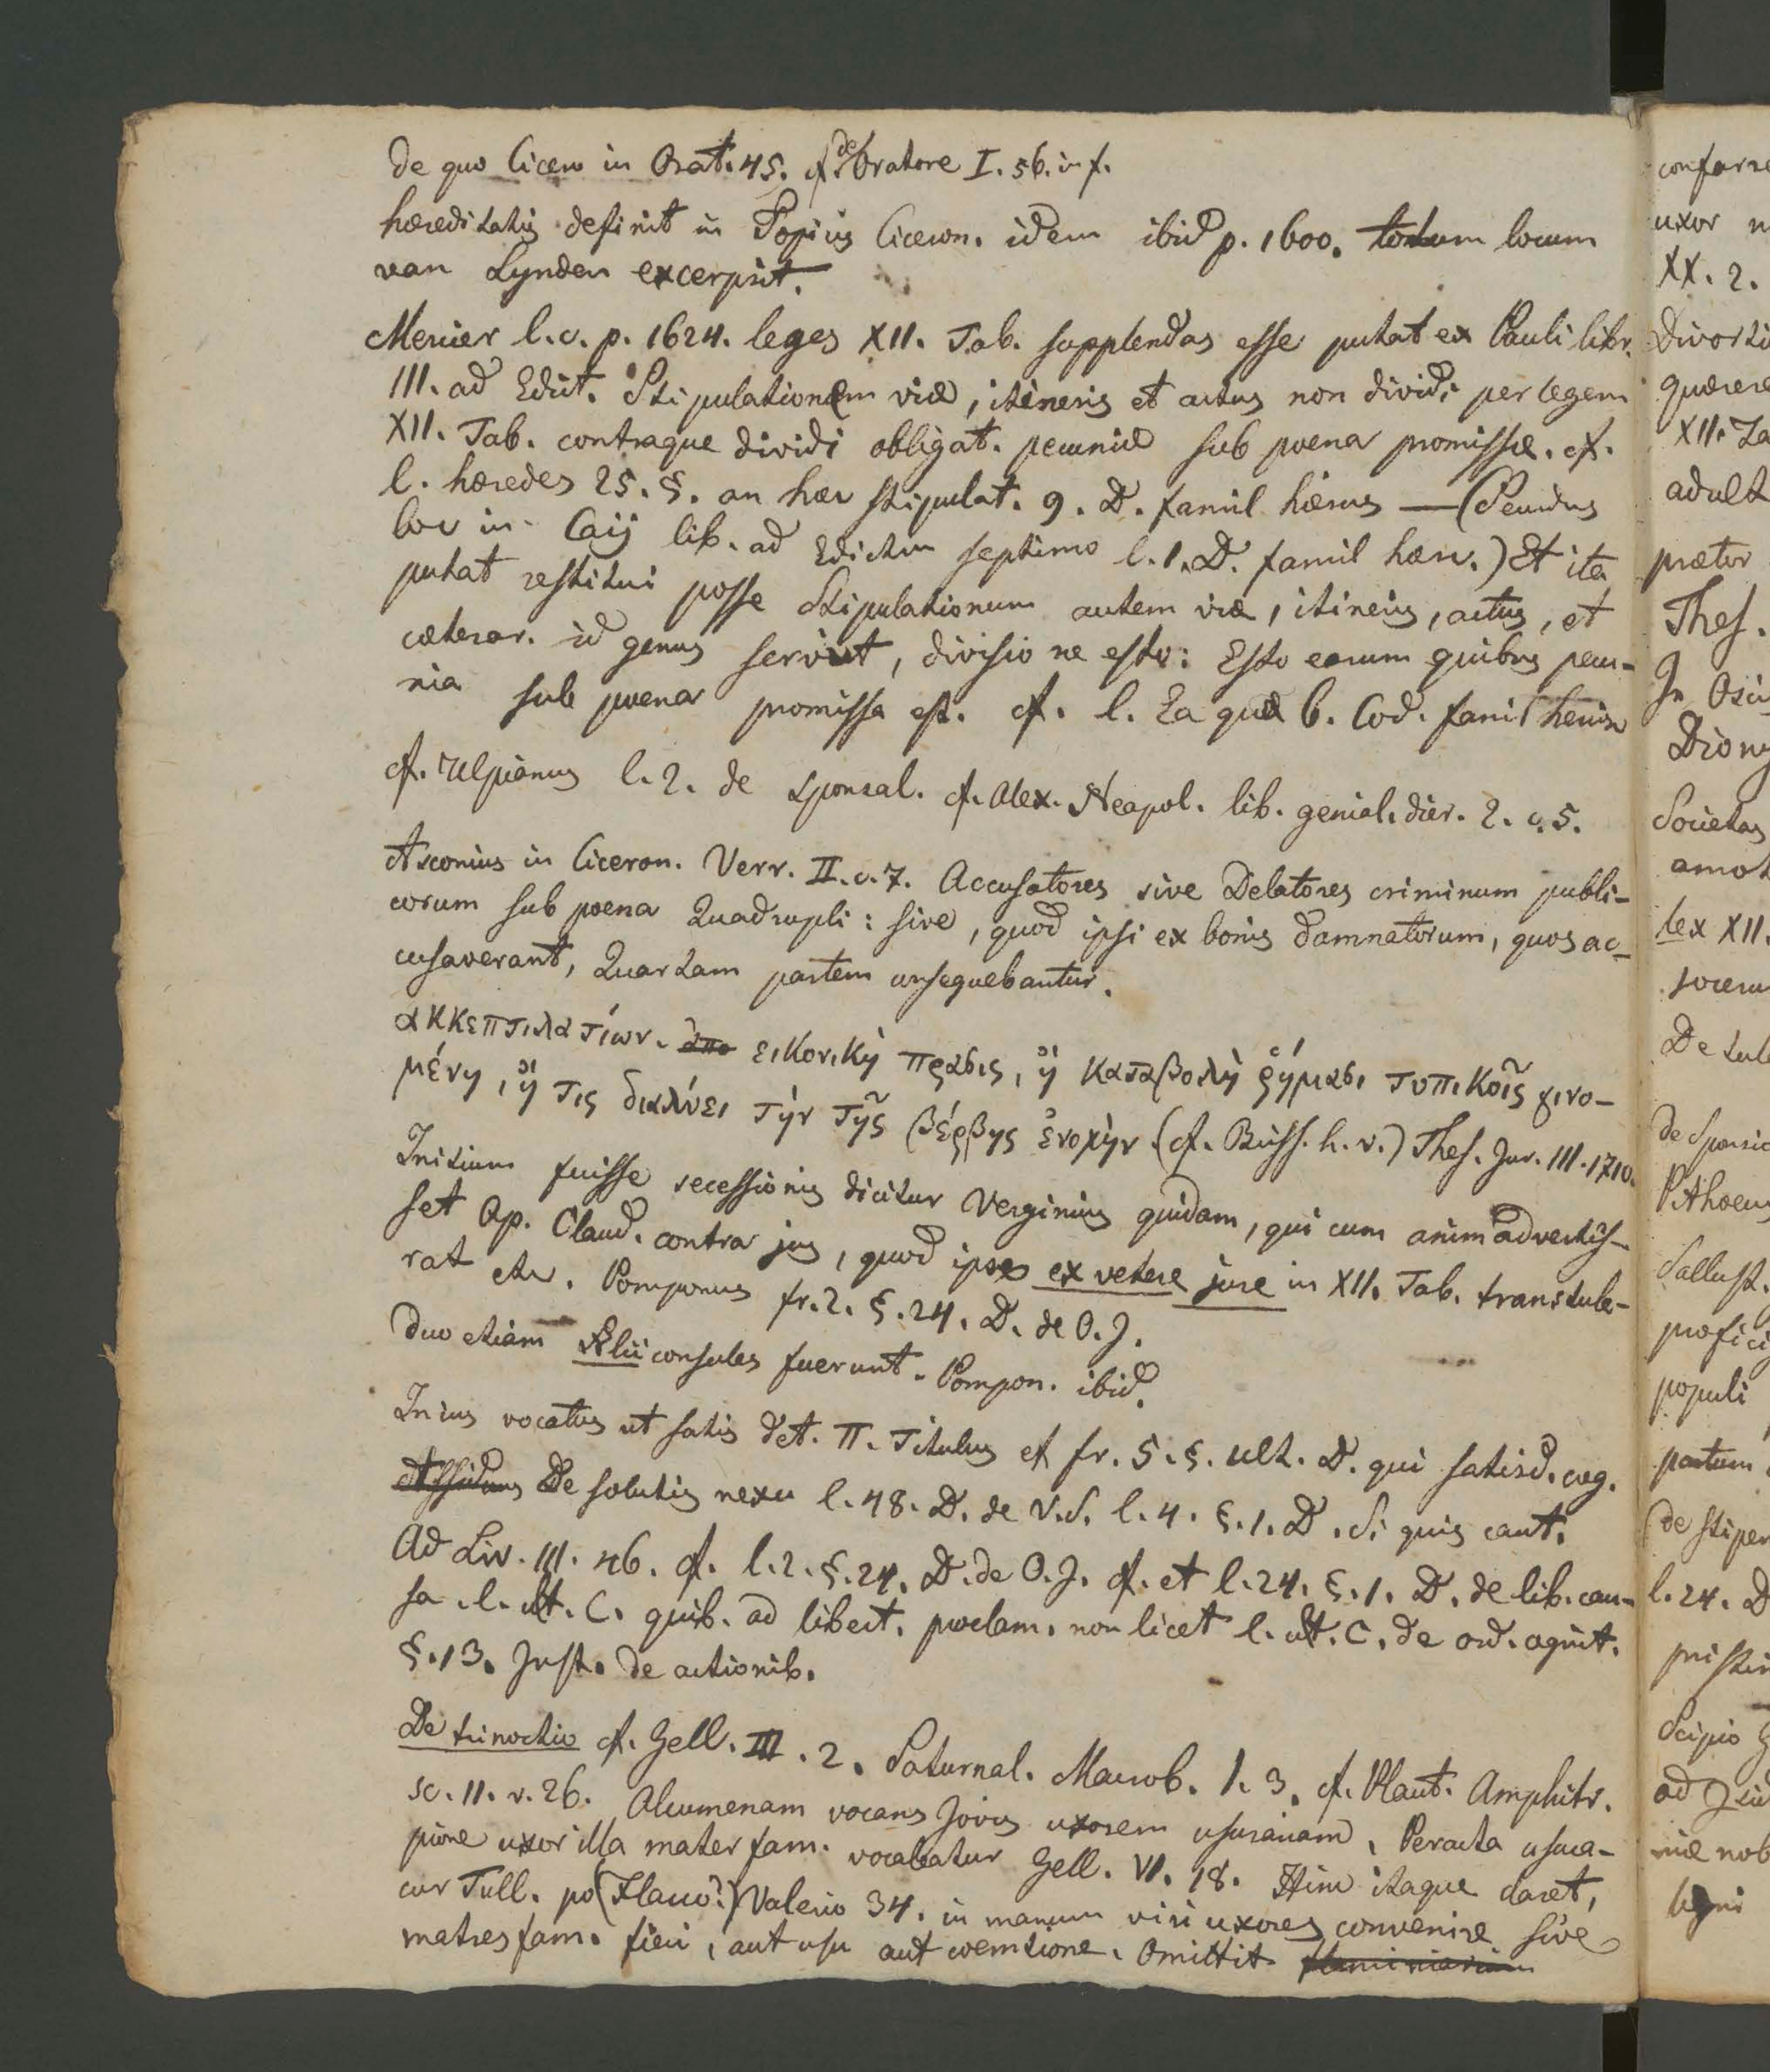 De quo Cicero in Orat. 45. cf. de Oratore I. 56. in f.
hæreditatis definit in Topicis Ciceron. idem ibid p. 1600. totum locum
van Lynden excerpsit.
Mercier l. c. p. 1624. leges XII. Tab. supplendas esse putat ex Pauli libr.
III. ad Edict. Stipulationem viæ, itineris et actus non dividi per legem
XII. Tab. contraque dividi obligat. pecuniæ sub poena promissæ. cf.
l. hæredes 25. §. an hæc stipulat. 9. D. famil hercis — (Pendus
loc in Caij lib. ad Edictum septimo l. 1. D. famil hærc.) Et ita
putat restitui posse Stipulationum autem viæ, itineris, actus, et
cæterar. id genus servit, divisio ne esto: Esto earum quibus pecu-
nia sub poena promissa est. cf. l. Ea quæ 6. Cod. famil hercisc
cf. Ulpianus l. 2. de sponsal. cf. Alex. Neapol. lib. genial. dier. 2. c. 5.
Asconius in Ciceron. Verr. II. c. 7. Accusatores sive Delatores criminum publi-
corum sub poena Quadrupli: sive, quod ipsi ex bonis damnatorum, quos ac-
cusaverant, Quartam partem consequebantur.
ακκεπτιλατίων. απο εικονικὴ πραξις, ἢ καταβολὴ ῥήμαζι τυπικοῖς γινο-
μένη, ἥ τις διαλύει τὴν τῆς βέρβης ἐνοχὴν (cf. Briss. h. v.) Thes. Jur. III. 1710.
Initium fuisse secessionis dicitur Verginius quidam, qui cum animadvertis-
set Ap. Claud. contra jus, quod ipse ex vetere jure in XII. Tab. transtule-
rat etc. Pomponius fr. 2. §. 24. D. de O. J.
Duo etiam Ælii consules fuerunt. Pompon. ibid.
In ius vocatus ut satis det. π. Titulus et fr. 5. §. ult. D. qui satisd. cog.
Assiduus De solutis nexu l. 48. D. de V. S. l. 4. §. 1. D. Si quis caut.
Ad Liv. III. 46. cf. l. 2. §. 24. D. de O. J. cf. et l. 24. §. 1. D. de lib. cau-
sa. l. ult. C. quib. ad libert. proclam. non licet l. ult. C. de ord. cognit.
§. 13. Inst. de actionib.
De trinoctio cf. Gell. III. 2. Saturnal. Macrob. 1. 3. cf. Plaut. Amphitr.
sc. II. v. 26. Alcumenam vocans Jovis uxorem usurariam. Peracta usuca-
pione uxor illa mater fam. vocabatur Gell. VI. 18. Hinc itaque claret,
cur Tull. po (Flacco?) Valerio 34. in manum viri uxores convenire sive
matres fam. fieri, aut usu aut coemtione. Omittit
confarre
uxor
XX. 2.
Divorti
quærere
XII. Ta
adult
prætor
Thes.
Diony
Societas
amot
lex XII.
socerum
De tute
de Sponsio
Pithoeus
Sallust.
profici
populi
partum
de stipen
l. 24. D
Scipio